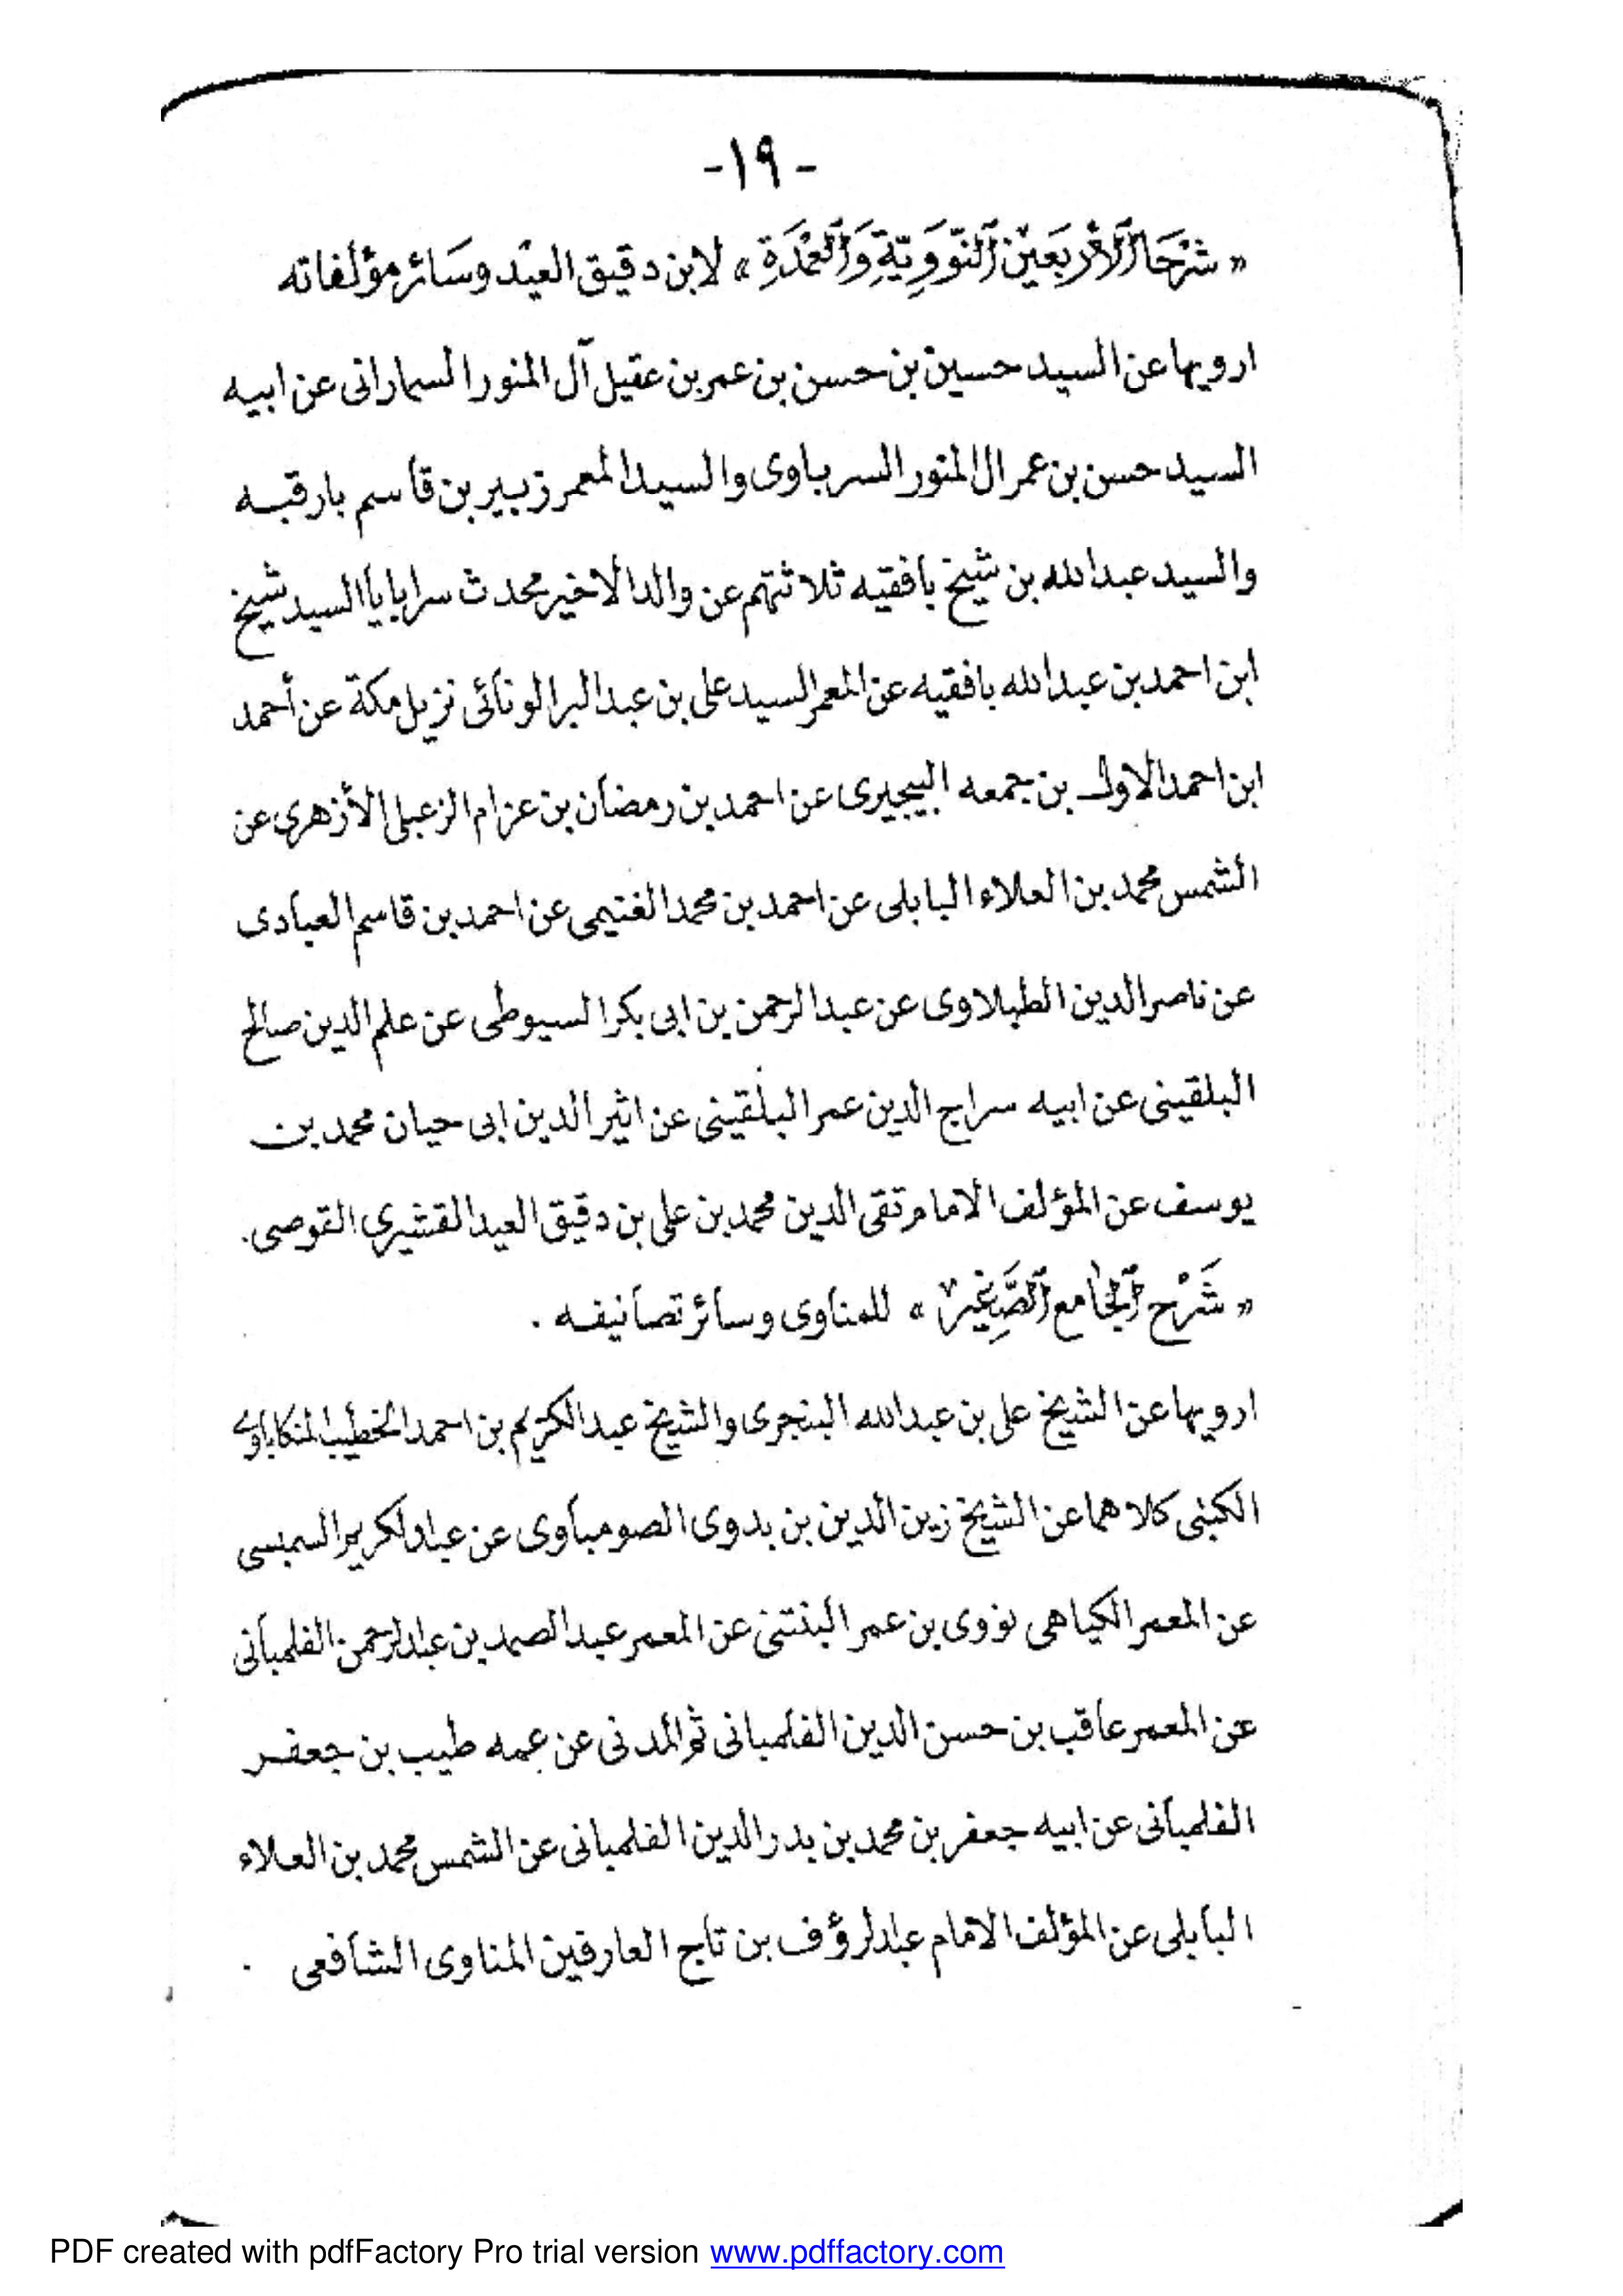 -١٩-
« شَرْحَا ٱلْأَرْبَعِيْنَ ٱلنَّوَوِيَّةِ وَٱلْعُمْدَةِ » لابن دقيق العيد وسائر مؤلفاته
ارويها عن السيد حسين بن حسن بن عمر بن عقيل آل المنور السمارانى عن ابيه
السيد حسن بن عمر ال المنور السرباوى والسيد المعمر زبير بن قاسم بارقبه
والسيد عبد الله بن شيخ بافقيه ثلاثتهم عن والد الاخير محدث سرابايا السيد شيخ
ابن احمد بن عبد الله بافقيه عن المعمر السيد على بن عبد البر الونائى نزيل مكة عن أحمد
ابن احمد الاول بن جمعه البيجيرى عن احمد بن رمضان بن عزام الزعبلى الأزهرى عن
الشمس محمد بن العلاء البابلى عن احمد بن محمد الغنيمى عن احمد بن قاسم العبادى
عن ناصر الدين الطبلاوى عن عبد الرحمن بن ابى بكر السيوطى عن علم الدين صالح
البلقينى عن ابيه سراج الدين عمر البلقينى عن اثير الدين ابى حيان محمد بن
يوسف عن المؤلف الامام تقى الدين محمد بن على بن دقيق العيد القشيرى القوصى .
« شَرْح ٱلْجَامع ٱلصَّغِير » للمناوى وسائر تصانيفه .
ارويها عن الشيخ على بن عبد الله البنجرى والشيخ عبد الكريم بن احمد الخطيب المنكاباوى
الكتبى كلاهما عن الشيخ زين الدين بن بدوى الصومباوى عن عبد الكريم السمبسى
عن المعمر الكياهى نووى بن عمر البنتنى عن المعمر عبد الصمد بن عبد الرحمن الفلمبانى
عن المعمر عاقب بن حسن الدين الفلمبانى ثم المدنى عن عمه طيب بن جعفر
الفلمبانى عن ابيه جعفر بن محمد بن بدر الدين الفلمبانى عن الشمس محمد بن العلاء
البابلى عن المؤلف الامام عبد الرؤف بن تاج العارفين المناوى الشافعى .
PDF created with pdfFactory Pro trial version www.pdffactory.com